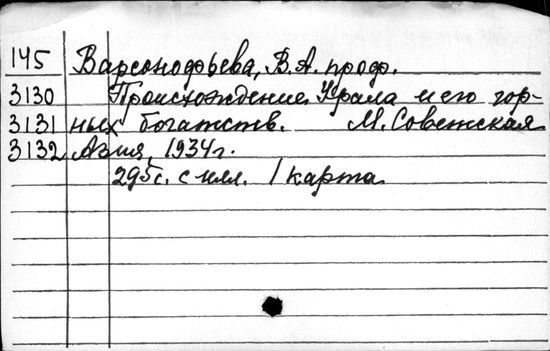 145 Варсонофьева, В.А. проф.
3130 Происхождение Урала и его гор-
3131 ных богатств. М. Советская
3132 Азия, 1934г.
295с. с илл. 1 карта